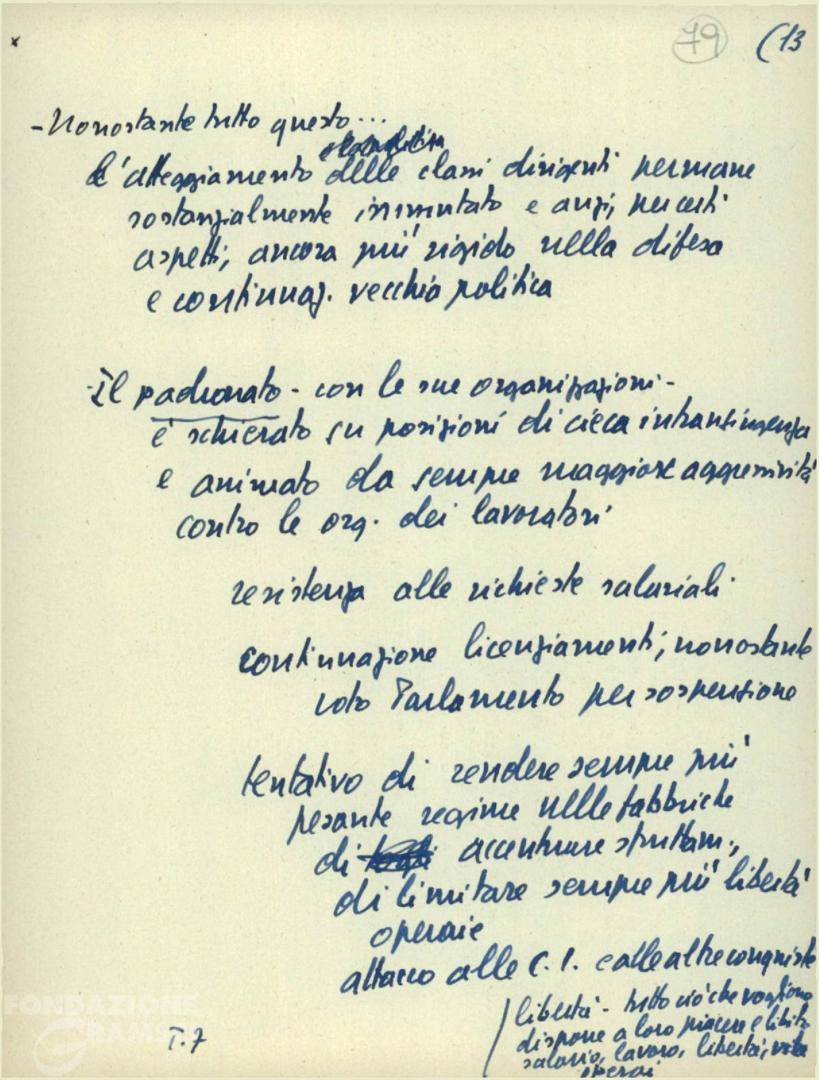 79 (13
-Nonostante tutto questo...
L'atteggiamento delle classi dirigenti permane
sostanzialmente immutato e anzi, per certi
aspetti, ancora più rigido nella difesa
e continuaz. vecchia politica
-Il padronato - con le sue organizzazioni -
è schierato su posizioni di cieca intransigenza
e animato da sempre maggiore aggressività
contro le org. dei lavoratori
resistenza alle richieste salariali
continuazione licenziamenti, nonostante
voto Parlamento per sospensione
tentativo di rendere sempre più
pesante regime nelle fabbriche
di accentuare sfruttam.,
di limitare sempre più libertà
operaie
attacco alle C.I. e alle altre conquiste
libertà - tutto ciò che vogliono
disporre a loro piacere e libito
salario, lavoro, libertà, vita
operai
FONDAZIONE
GRAMSCI
T.7